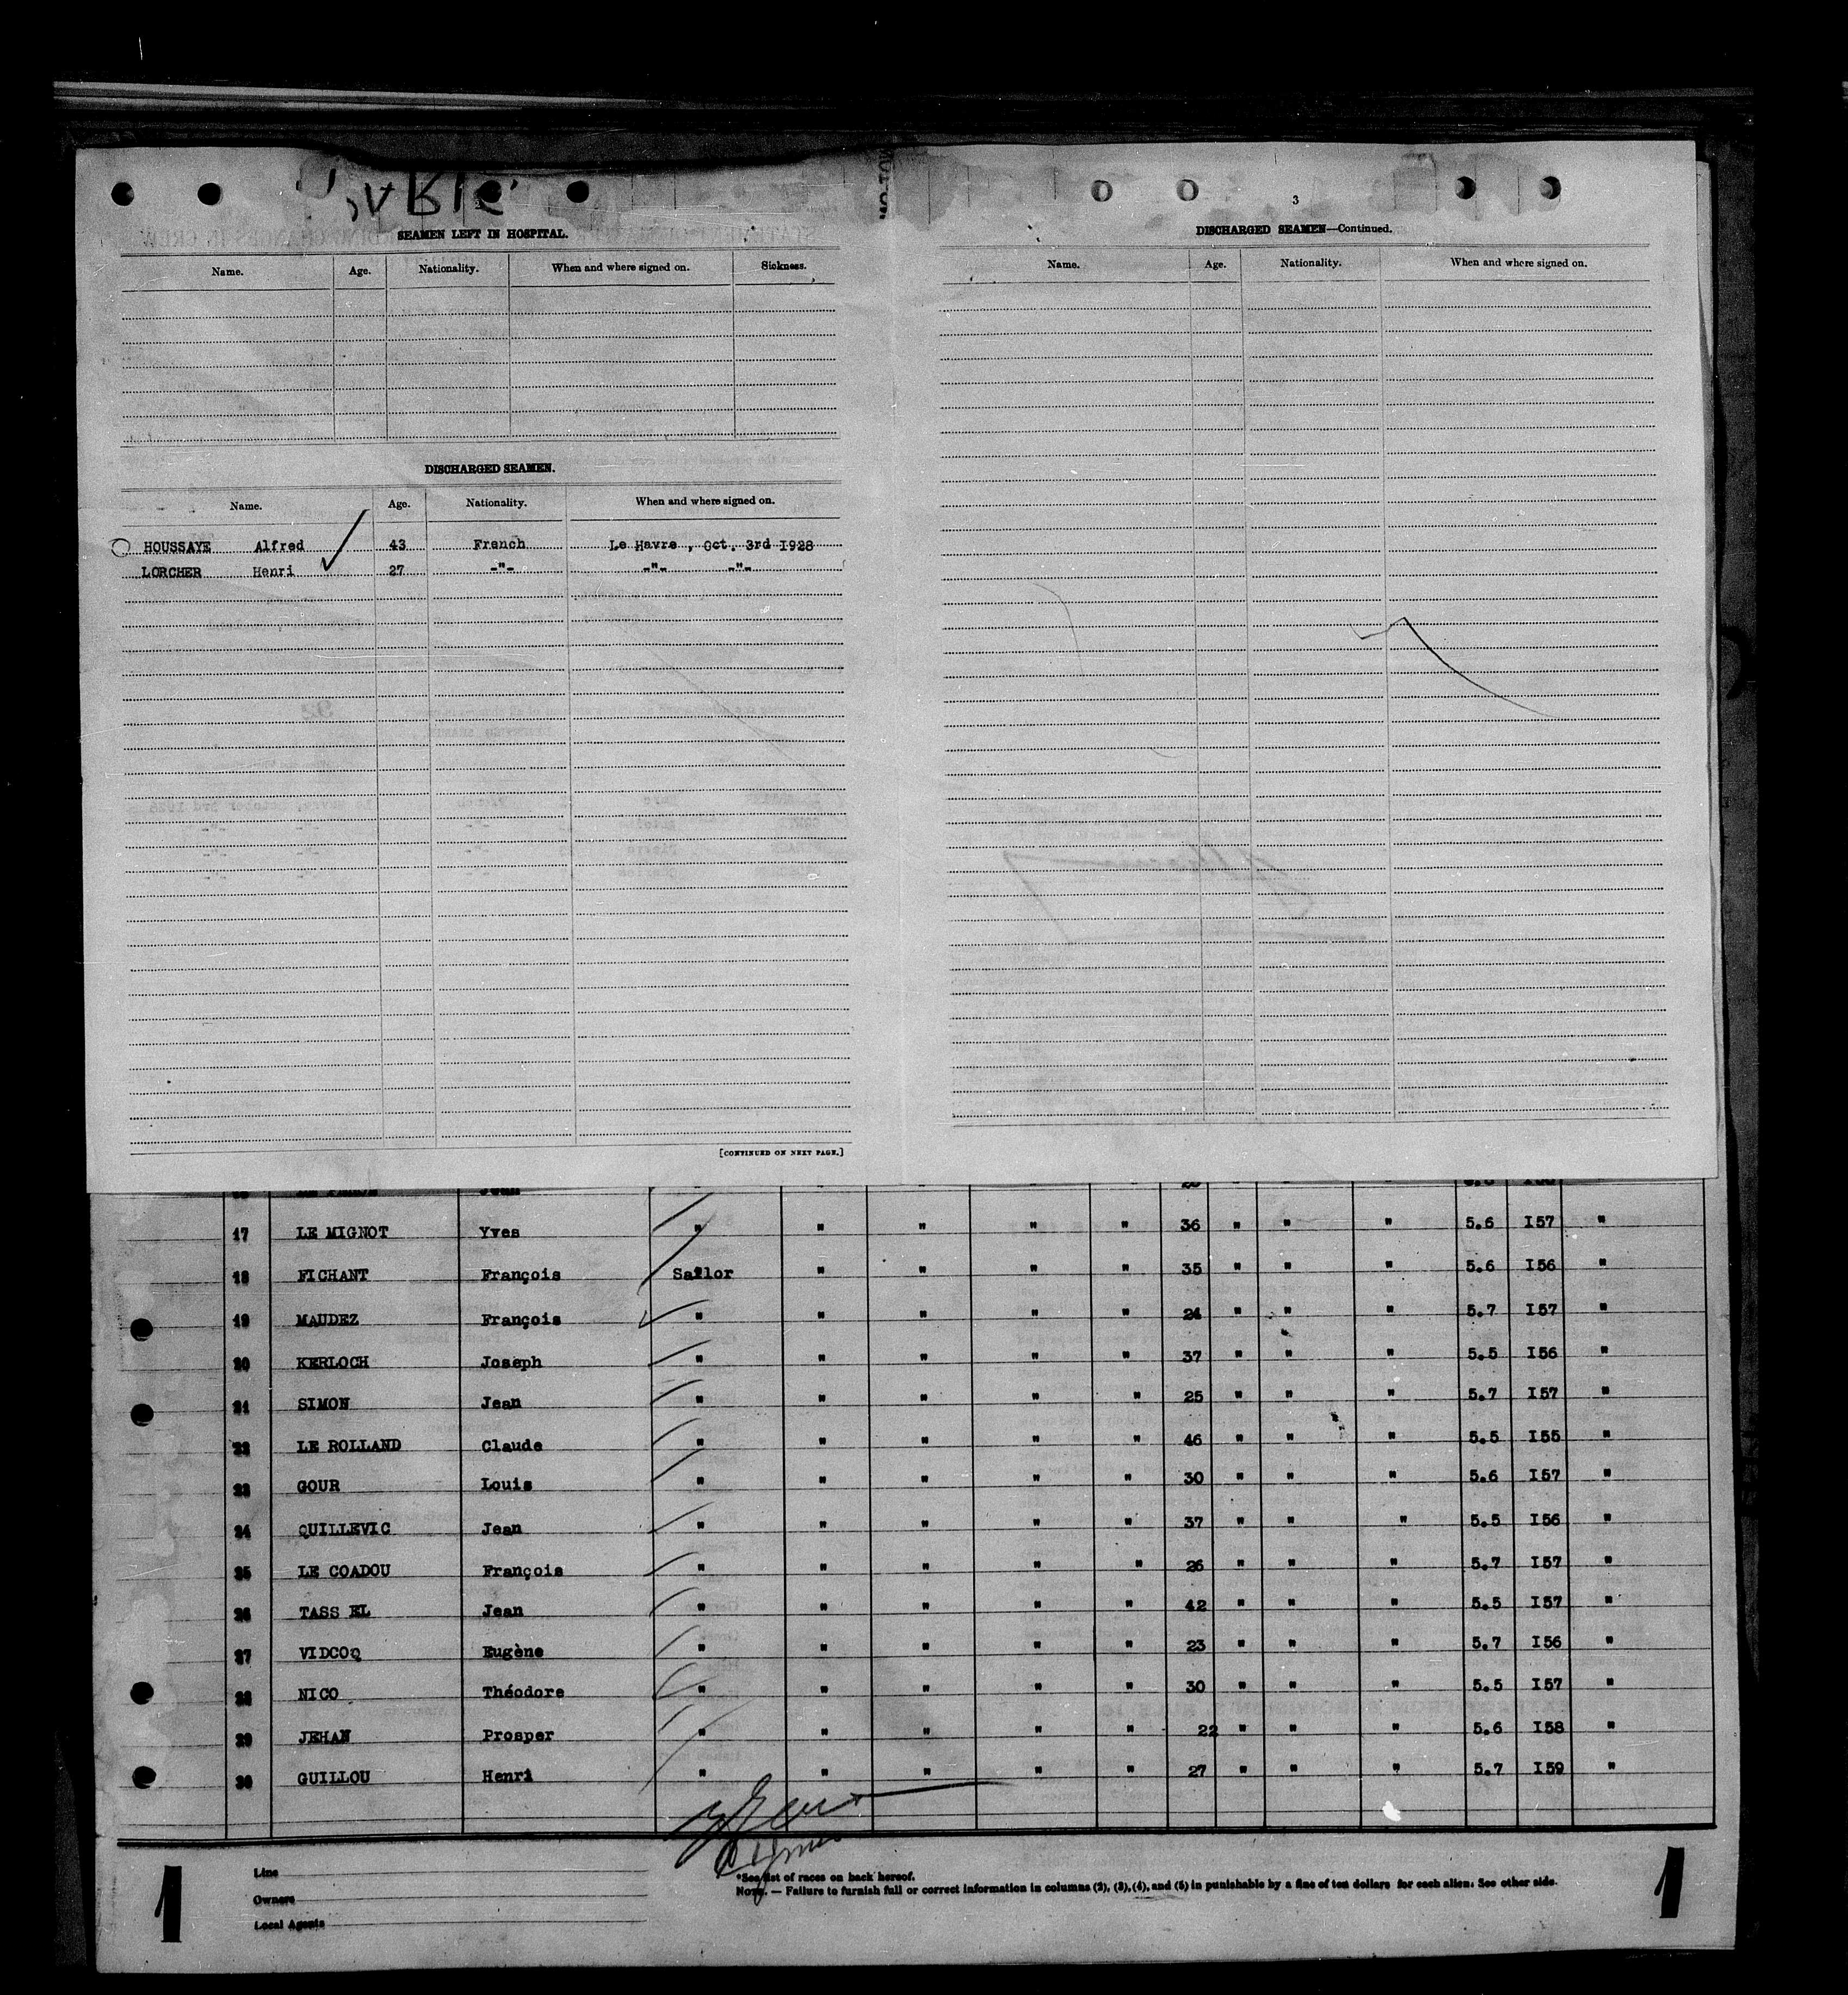 SEAMEN LEFT IN HOSPITAL.
Name. Age. Nationality. When and where signed on. Sickness.
DISCHARGED SEAMEN.
Name. Age. Nationality. When and where signed on.
HOUSSAYE Alfred 43 French Le Havre, Oct. 3rd I928
LORCHER Henri 27 -"- -"- -"-
[CONTINUED ON NEXT PAGE.]
3
DISCHARGED SEAMEN—Continued.
Name. Age. Nationality. When and where signed on.
17 LE MIGNOT Yves " " " " " 36 " " " 5.6 I57 "
18 FICHANT François Sailor " " " " 35 " " " 5.6 I56 "
19 MAUDEZ François " " " " " 24 " " " 5.7 I57 "
20 KERLOCH Joseph " " " " " 37 " " " 5.5 I56 "
21 SIMON Jean " " " " " 25 " " " 5.7 I57 "
22 LE ROLLAND Claude " " " " " 46 " " " 5.5 I55 "
23 GOUR Louis " " " " " 30 " " " 5.6 I57 "
24 QUILLEVIC Jean " " " " " 37 " " " 5.5 I56 "
25 LE COADOU François " " " " " 26 " " " 5.7 I57 "
26 TASS EL Jean " " " " " 42 " " " 5.5 I57 "
27 VIDCOQ Eugène " " " " " 23 " " " 5.7 I56 "
28 NICO Théodore " " " " " 30 " " " 5.5 I57 "
29 JEHAN Prosper " " " " " 22 " " " 5.6 I58 "
30 GUILLOU Henri " " " " " 27 " " " 5.7 I59 "
1 1
Line
Owners
Local Agents
*See list of races on back hereof.
NOTE. — Failure to furnish full or correct information in columns (2), (3), (4), and (5) is punishable by a fine of ten dollars for each alien. See other side.